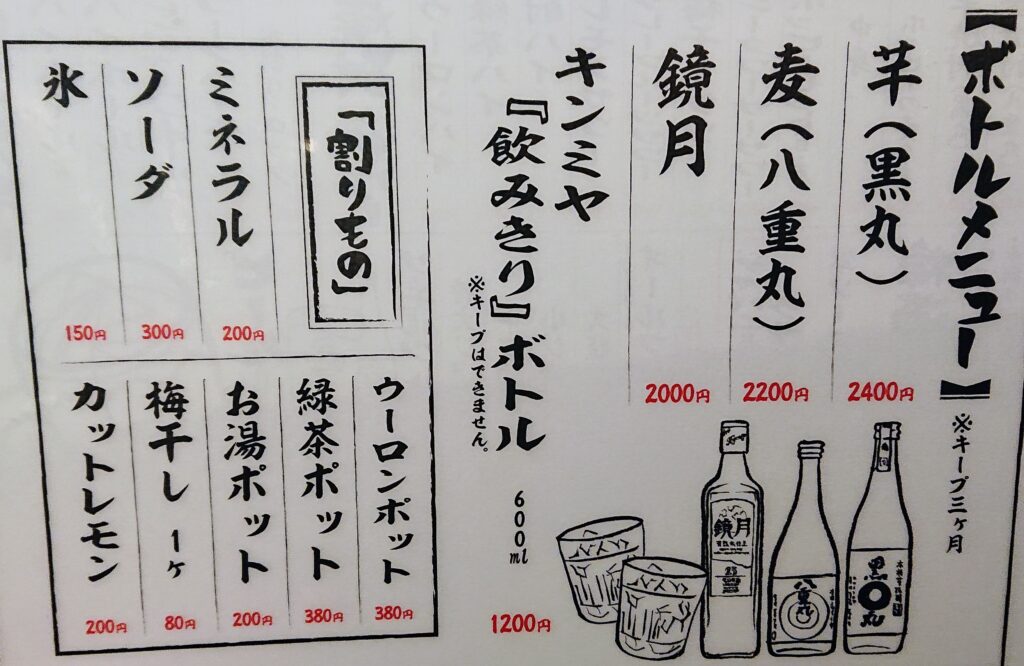 【ボトルメニュー】
※キープ三ヶ月
芋(黒丸)
2400円
麦(八重丸)
2200円
鏡月
2000円
キンミヤ
『飲みきり』ボトル
※キープはできません。
600ml
1200円
「割りもの」
ミネラル
200円
ソーダ
300円
氷
150円
ウーロンポット
380円
緑茶ポット
380円
お湯ポット
200円
梅干し 1ヶ
80円
カットレモン
200円
鏡月
25
八重丸
黒丸